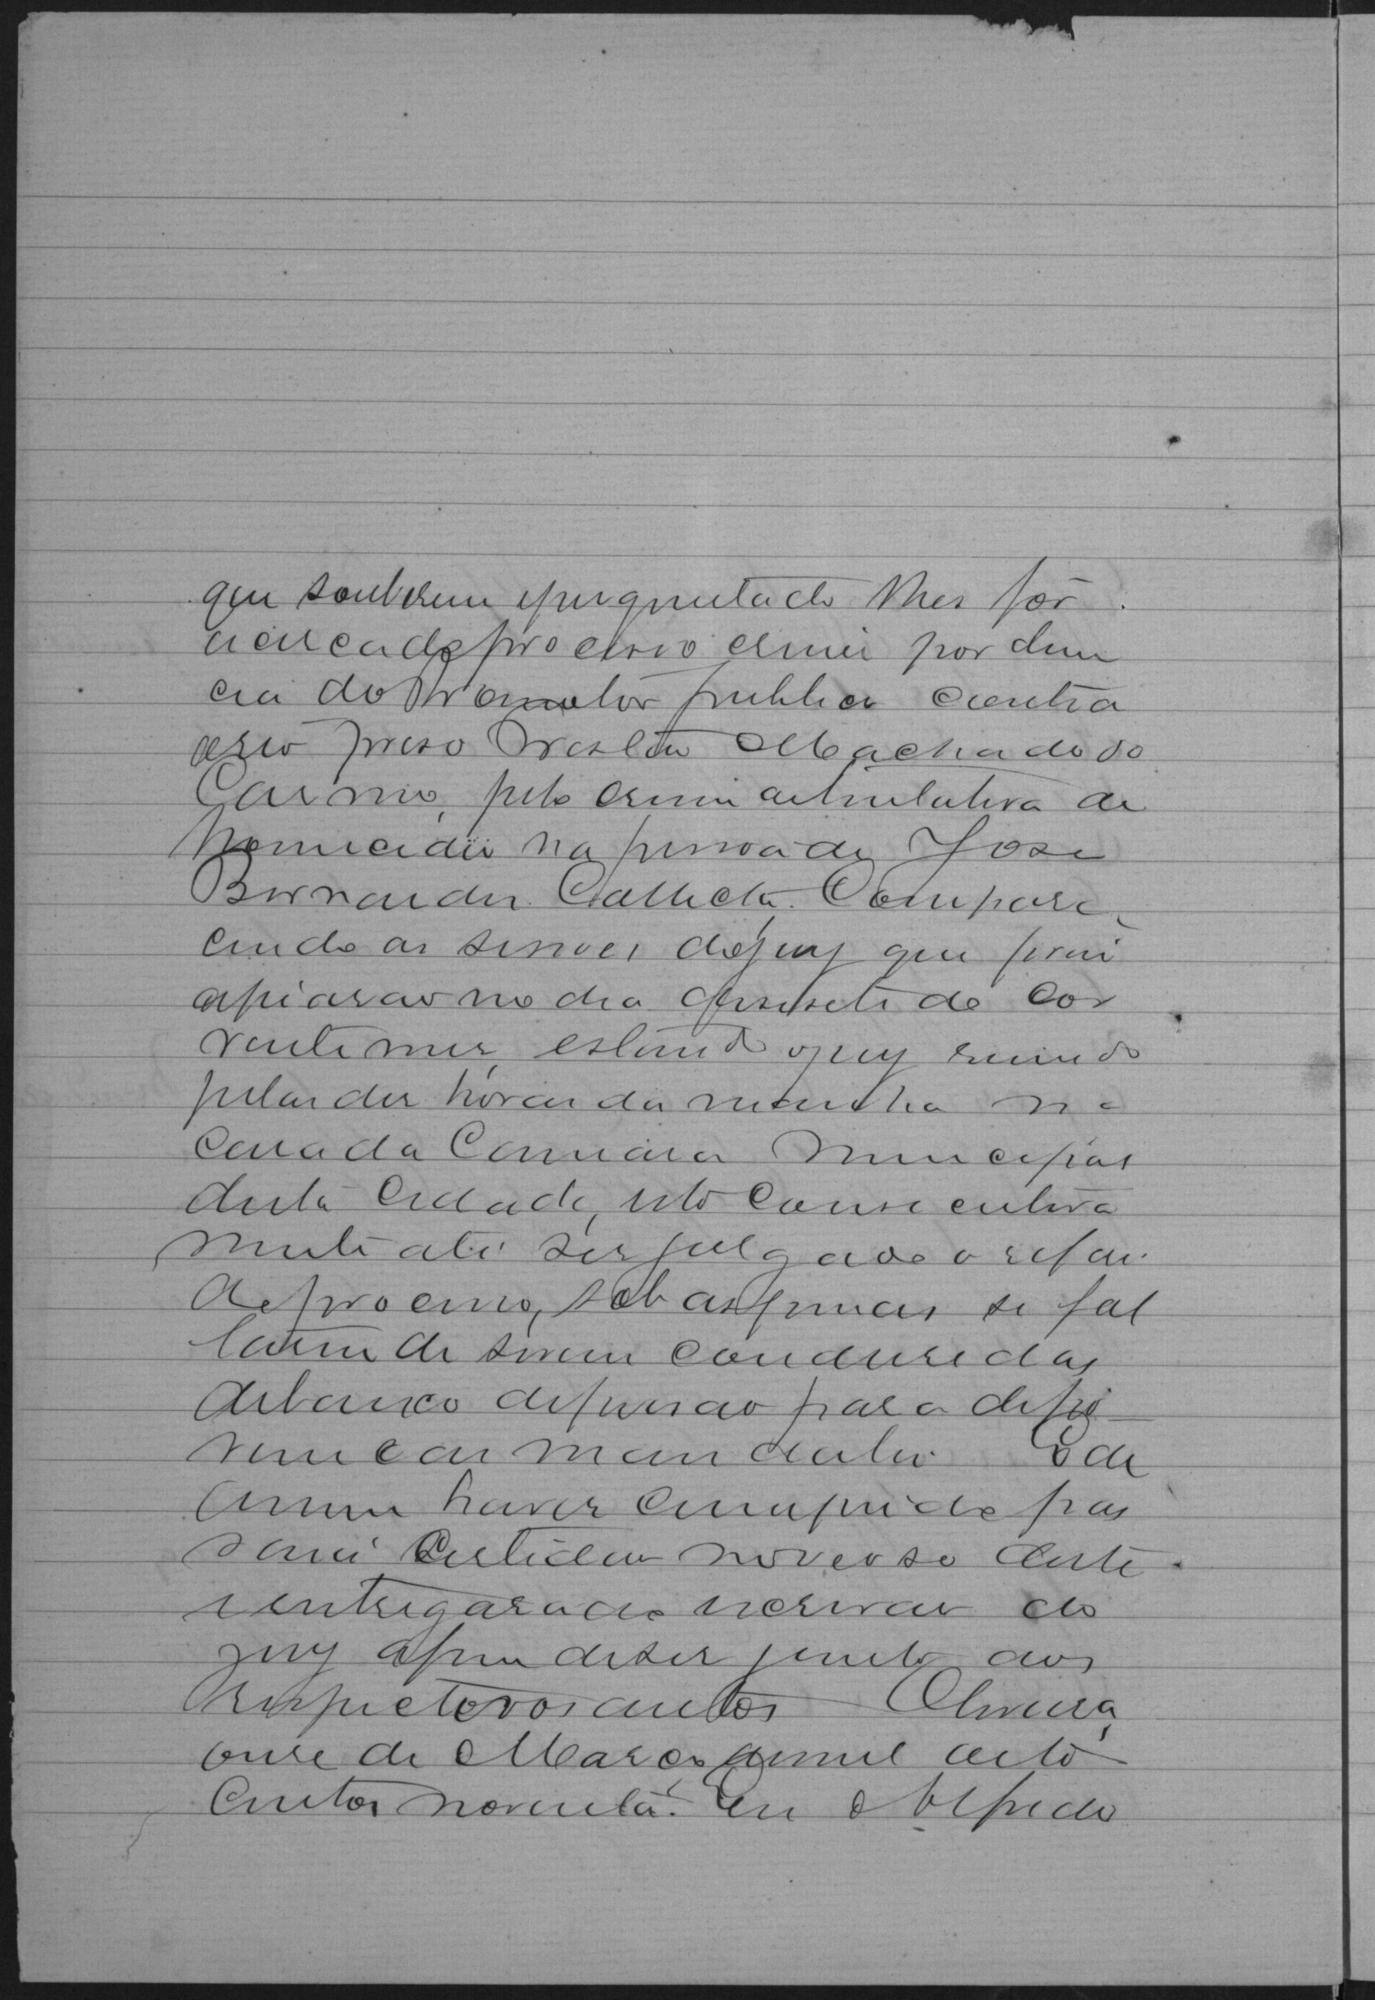 que souberem e perguntado lhes for
acerca do processo crime por denun
cia do Promotor publico contra
o reo preso Machado do
Carmo, pelo crime de
homicidio na pessoa de José
Bernardes Calheta. Compare
cendo as sessoes do jury que prin
cipiarão no dia desesete do cor
rente mes, estando o jury reunido
pelas des horas da manha na
casa da Camara Municipal
desta Cidade, isto consecutiva
mente até ser julgado o referi
do processo, sob as penas se fal
tarem de serem condusidas
debaixo de prisão para depo
rem e as mandatos. E de
assim haver cumprido pas
sará Certidão no verso deste
e entregará ao escrivão do
jury afim de ser junto aos
respectivos autos Oliveira,
onse de Março de mil oito
centos noventa. Eu Alfredo